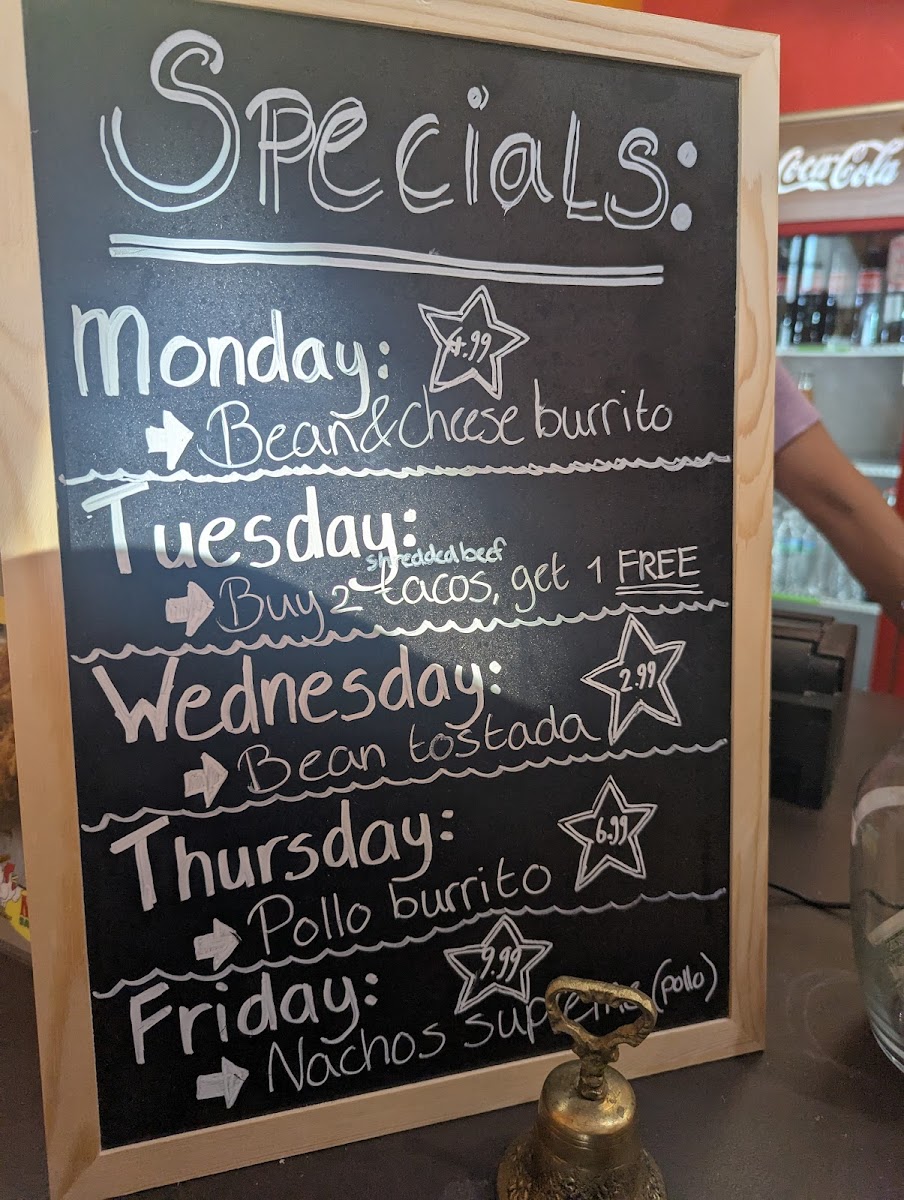 Specials:
Coca-Cola
Monday:
4.99
Bean & cheese burrito
Tuesday:
shredded beef
Buy 2 tacos, get 1 FREE
Wednesday:
2.99
Bean tostada
Thursday:
6.99
Pollo burrito
Friday:
9.99
Nachos supreme (pollo)